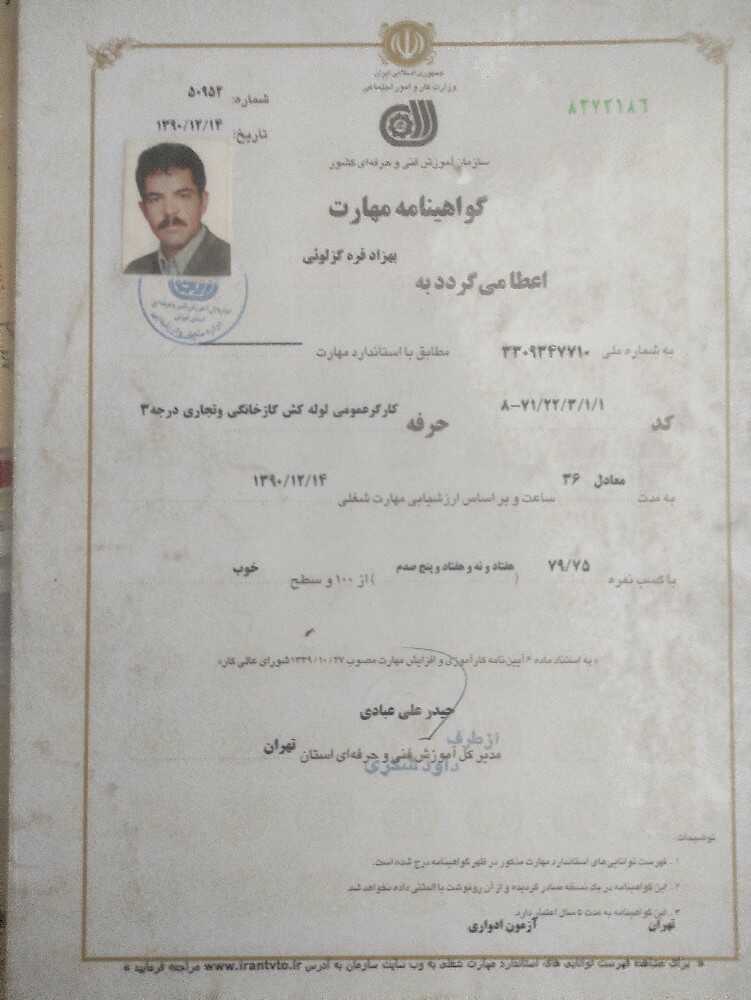 جمهوری اسلامی ایران
وزارت کار و امور اجتماعی
شماره: ۵۰۹۵۲
۸۲۷۲۱۸۶
تاریخ: ۱۳۹۰/۱۲/۱۴
سازمان آموزش فنی و حرفه‌ای کشور
گواهینامه مهارت
بهزاد قره گزلوئی
اعطا می‌گردد به
به شماره ملی ۳۳۰۹۳۴۷۷۱۰ مطابق با استاندارد مهارت
کد ۸-۷۱/۲۲/۳/۱/۱ حرفه کارگرعمومی لوله کش گازخانگی وتجاری درجه۳
به مدت معادل ۳۶ ساعت و بر اساس ارزشیابی مهارت شغلی ۱۳۹۰/۱۲/۱۴
با کسب نمره ۷۹/۷۵ (هفتاد و نه و هفتاد و پنج صدم) از ۱۰۰ و سطح خوب
« به استناد ماده ۶ آیین‌نامه کارآموزی و افزایش مهارت مصوب ۱۳۴۹/۱۰/۲۷ شورای عالی کار»
حیدر علی عبادی
از طرف
مدیر کل آموزش فنی و حرفه‌ای استان تهران
داود شکری
توضیحات:
۱. فهرست توانایی‌های استاندارد مهارت مذکور در ظهر گواهینامه درج شده است.
۲. این گواهینامه در یک نسخه صادر گردیده و از آن رونوشت یا المثنی داده نخواهد شد.
۳. این گواهینامه به مدت ۵ سال اعتبار دارد.
تهران آزمون ادواری
« برای مشاهده فهرست توانایی های استاندارد مهارت شغلی به وب سایت سازمان به آدرس www.irantvto.ir مراجعه فرمایید »